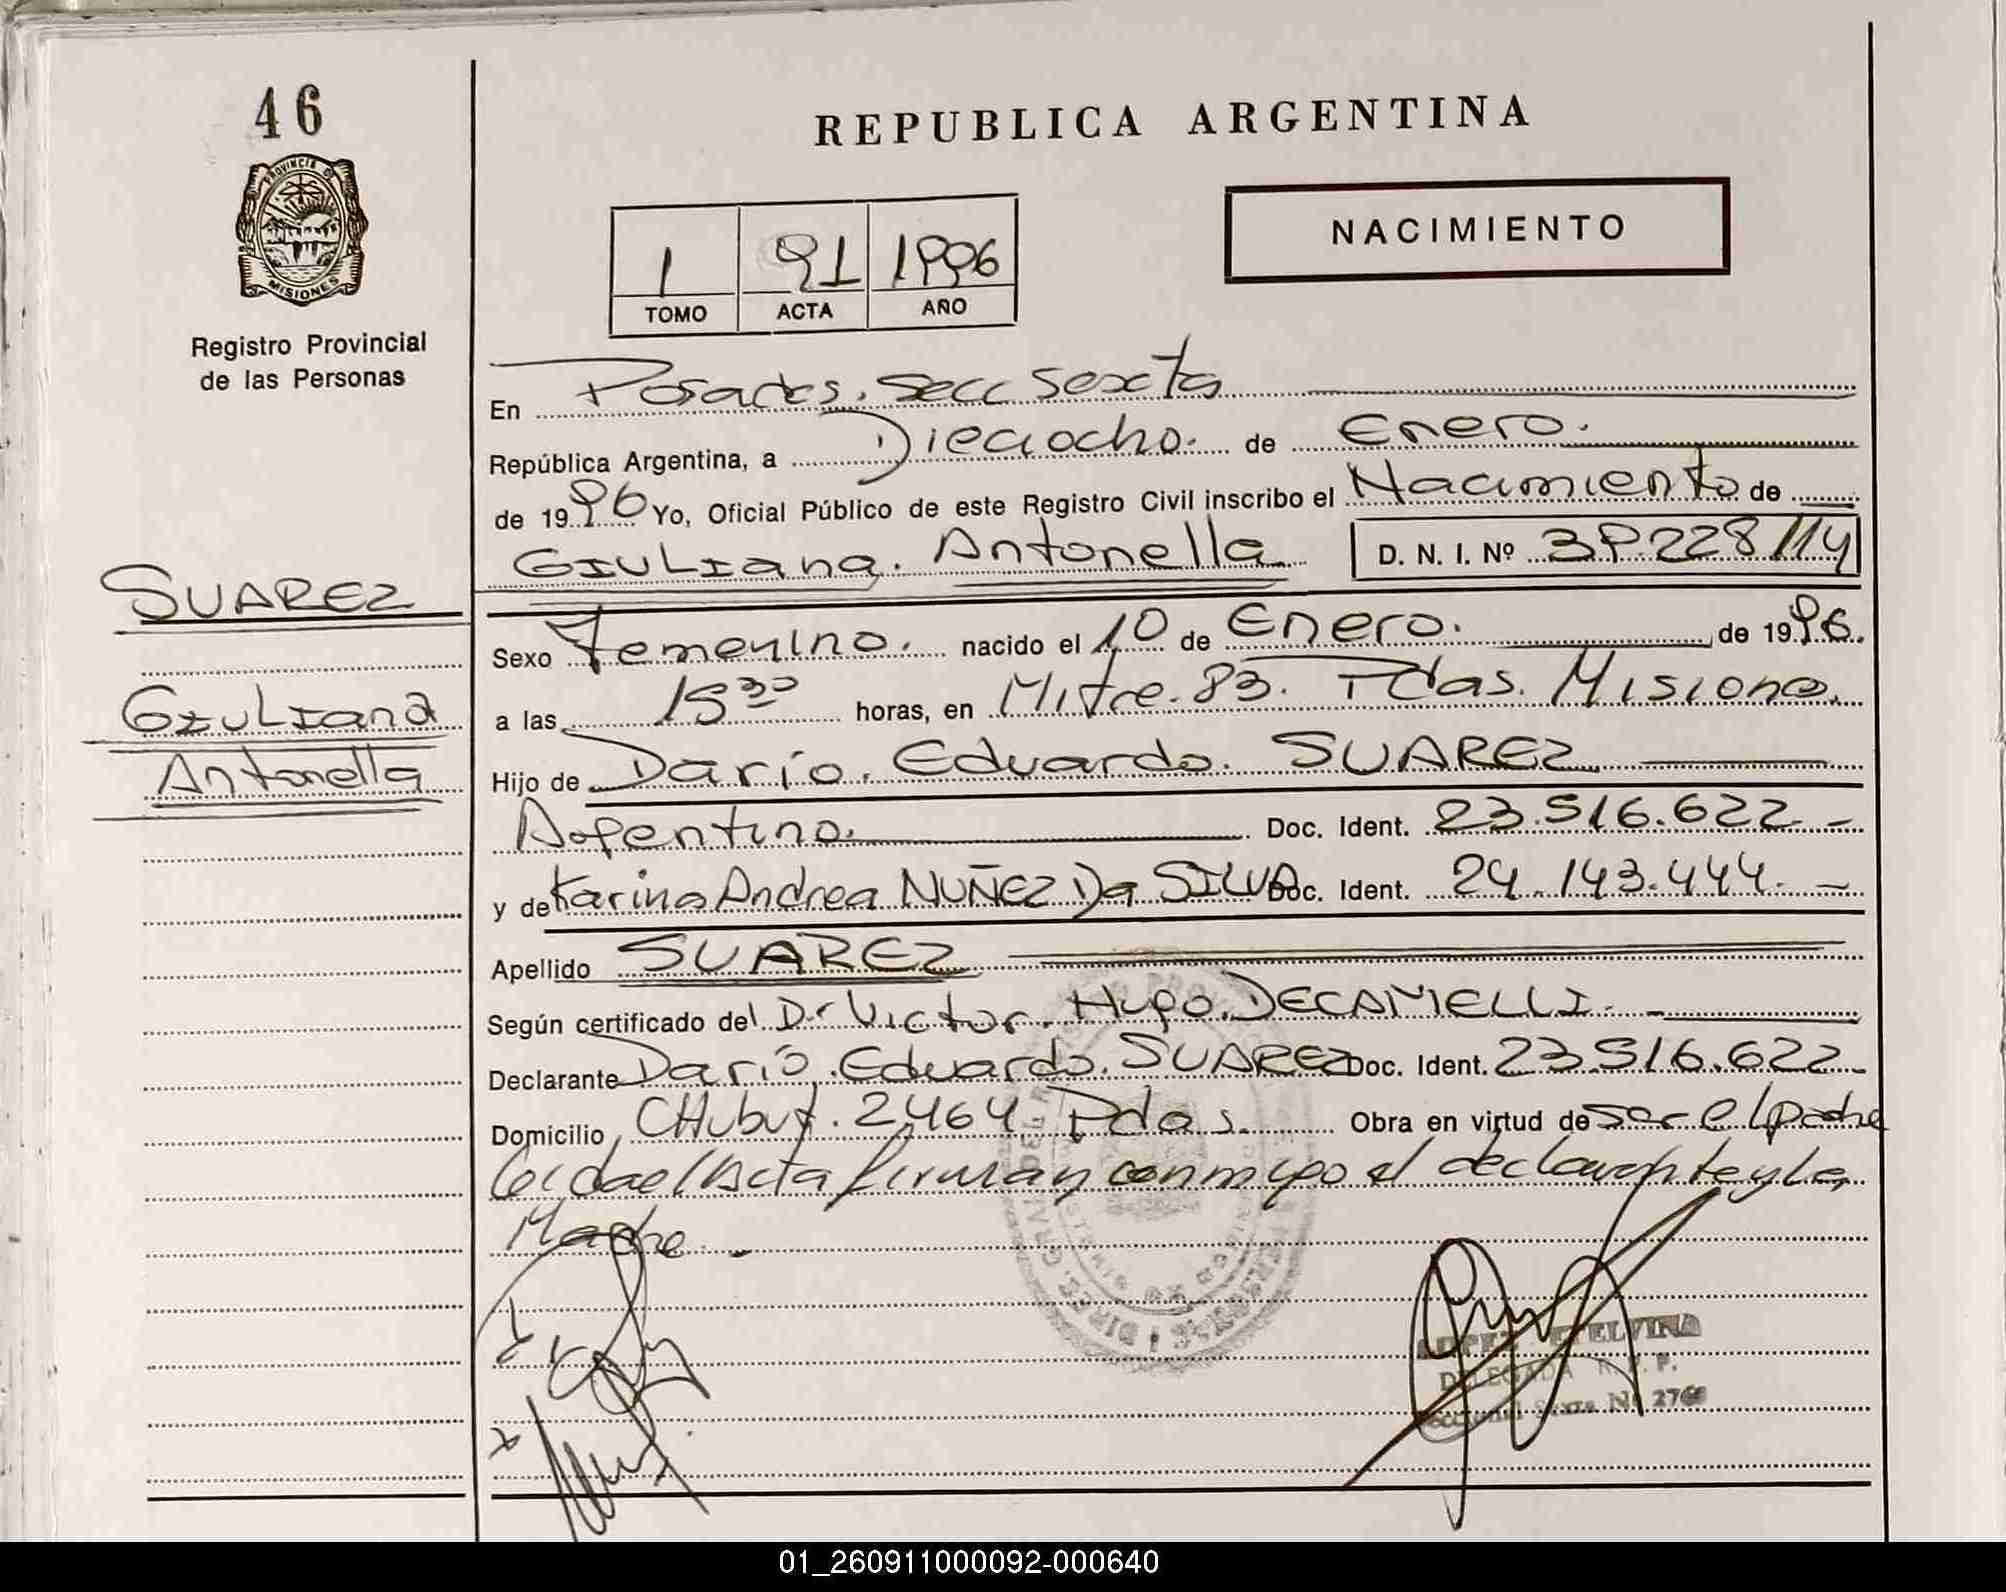 46
PROVINCIA D
MISIONES
Registro Provincial
de las Personas
REPUBLICA ARGENTINA
NACIMIENTO
1 91 1996
TOMO ACTA AÑO
En Posadas. Secc Sexta
República Argentina, a Dieciocho. de Enero.
de 1996 Yo, Oficial Público de este Registro Civil inscribo el Nacimiento de
GIULIana. Antonella D. N. I. Nº 39.228114
SUAREZ
GIULIana
Antonella
Sexo Femenino. nacido el 10 de Enero. de 1996.
a las 15 30 horas, en Mitre. 83. Pdas. Misiones.
Hijo de Darío. Eduardo. SUAREZ
Argentino. Doc. Ident. 23.516.622.-
y de Karina Andrea NUÑEZ Da SILVA Doc. Ident. 24.143.444.-
Apellido SUAREZ
Según certificado del Dr Victor. Hugo. DECAMELLI.
Declarante Darío. Eduardo. SUAREZ Doc. Ident. 23.516.622-
Domicilio CHubut. 2464. Pdas. Obra en virtud de ser el padre
Leída el Acta firman conmigo el declarante y la
Madre.-
ETELVINA
DELEGADA R. P. P.
Seccional Sexta
01_260911000092-000640